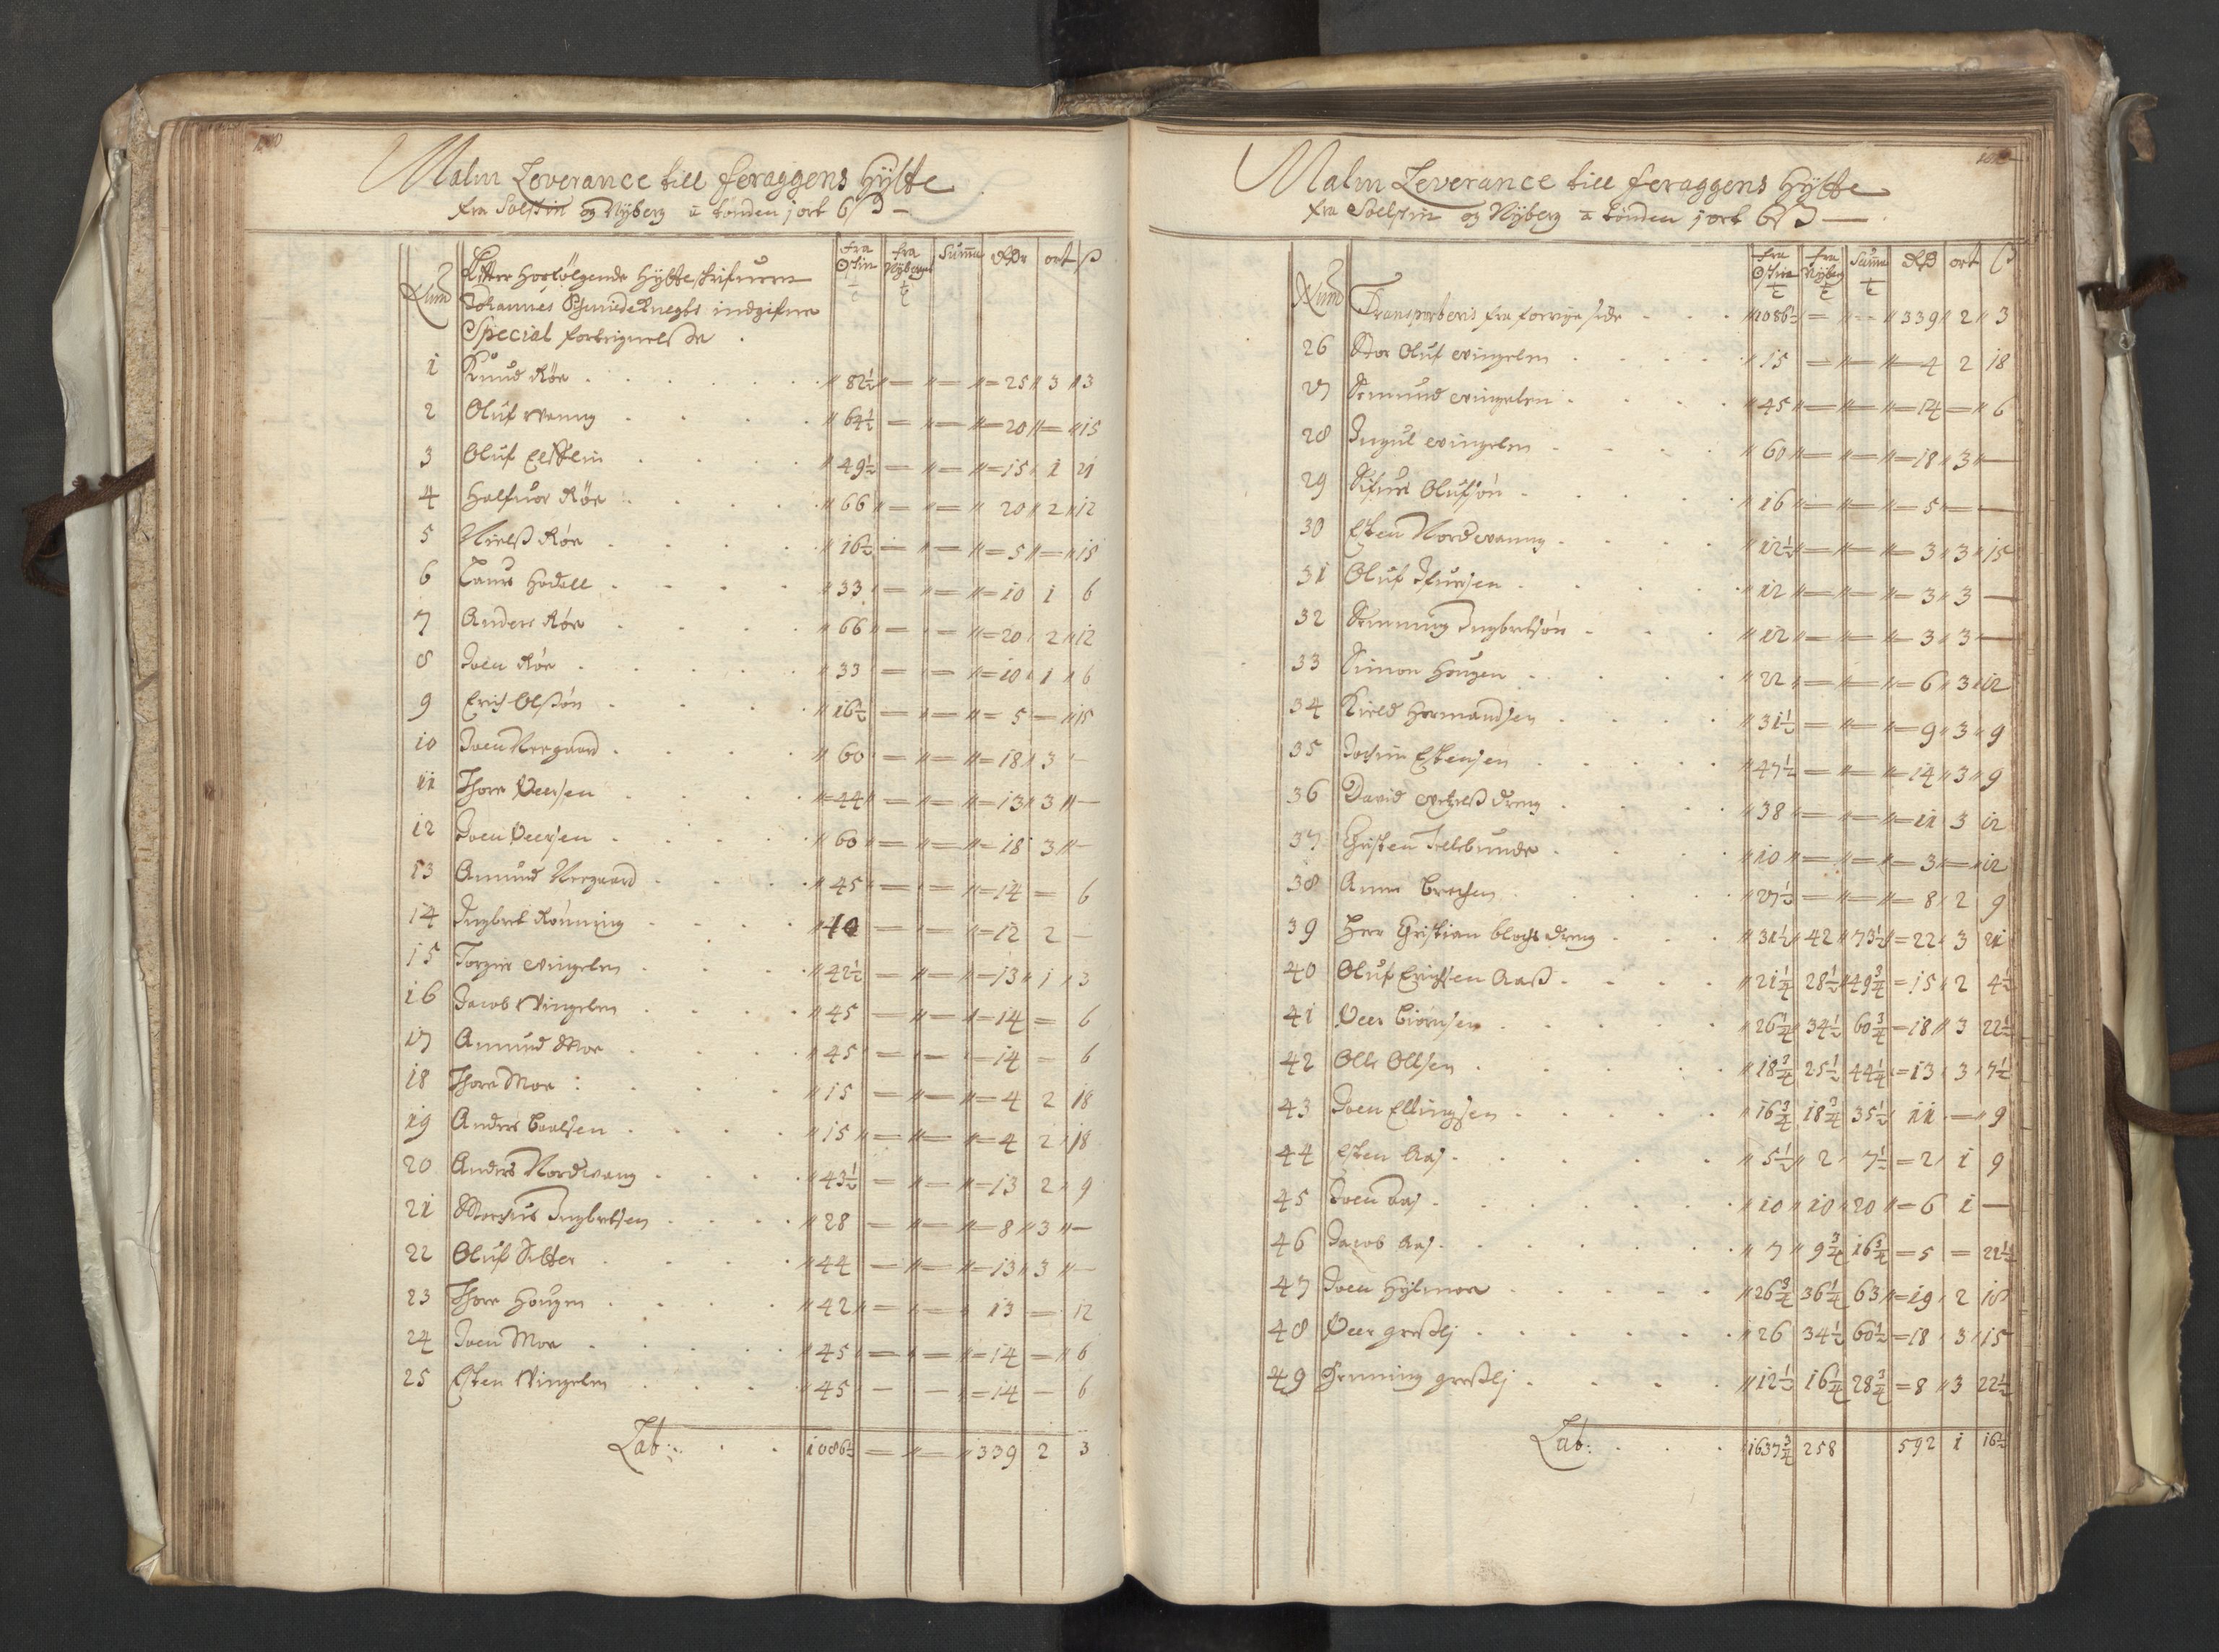 Malm Leverance till feraggens Hÿtte
fra Solskin og Nÿberg a tönden j ort 6 ß —
Num
fra Oskin t
fra Nÿberget t
Summa
Rdr ort ß
Efter Hosfölgende Hÿtteskrifuerens
Johannes Schmideknegts indgifne
Special fortegnelse
1 Knud Röe 82½ — — 25 3 3
2 Oluf Wang 64½ — — 20 — 15
3 Oluf 49½ — — 15 1 21
4 Halfuor Röe 66 — — 20 2 12
5 Nielß Röe 16½ — — 5 — 15
6 Laurs Hodall 33 — — 10 1 6
7 Anders Röe 66 — — 20 2 12
8 Joen Röe 33 — — 10 1 6
9 Erich Olßön 16½ — — 5 — 15
10 Joen Neegaard 60 — — 18 3 —
11 Thore Peersen 44 — — 13 3 —
12 Joen Peersen 60 — — 18 3 —
13 Amund Neegaard 45 — — 14 — 6
14 Ingbret Rönning 40 — — 12 2 —
15 Torger Wingelen 42½ — — 13 1 3
16 Jacob Wingelen 45 — — 14 — 6
17 Amund Moe 45 — — 14 — 6
18 Thore Moe 15 — — 4 2 18
19 Anders Poelsen 15 — — 4 2 18
20 Anders Nordwang 43½ — — 13 2 9
21 Ingbretsen 28 — — 8 3 —
22 Oluf 44 — — 13 3 —
23 Thore Hougen 42 — — 13 — 12
24 Joen Moe 45 — — 14 — 6
25 Esten Wingelen 45 — — 14 — 6
Lat: 1086½ — — 339 2 3
Malm Leverance till feraggens Hÿtte
fra Soelskin og Nÿberg a tönden j ort 6 ß —
Num
fra Oskin t
fra Nÿberg t
Summa t
Rd ort ß
Transporteris fra forrige side 1086½ — — 339 2 3
26 Stor Oluf Wingelen 15 — — 4 2 18
27 Semund Wingelen 45 — — 14 — 6
28 Ingul Wingelen 60 — — 18 3 —
29 Sifuer Olufsön 16 — — 5 — —
30 Esten Nordwang 12½ — — 3 3 15
31 Oluf Ifuersen 12 — — 3 3 —
32 Ingbretsön 12 — — 3 3 —
33 Simon Hougen 22 — — 6 3 12
34 Kield Hermandsen 31½ — — 9 3 9
35 Jochim Estensen 47½ — — 14 3 9
36 David dreng 38 — — 11 3 12
37 Christen 10 — — 3 — 12
38 Anne 27½ — — 8 2 9
39 Herr Christian Blochs dreng 31½ 42 73½ 22 3 21
40 Oluf Erichsen Aaß 21¼ 28½ 49¾ 15 2 4½
41 Peer Biörnsen 26¼ 34½ 60¾ 18 3 22½
42 Olle Ollsen 18¾ 25½ 44¼ 13 3 7½
43 Joen Ellingsen 16¾ 18¾ 35½ 11 — 9
44 Esten Aas 5½ 2 7½ 2 1 9
45 Joen Aas 10 10 20 6 1 —
46 Jacob Aas 7 9¾ 16¾ 5 — 22½
47 Joen Hÿlmoe 26¾ 36¼ 63 19 2 18
48 Peer Greßlj 26 34½ 60½ 18 3 15
49 Henning Greßlj 12½ 16¼ 28¾ 8 3 22½
Lat: 1637¾ 258 592 1 16½